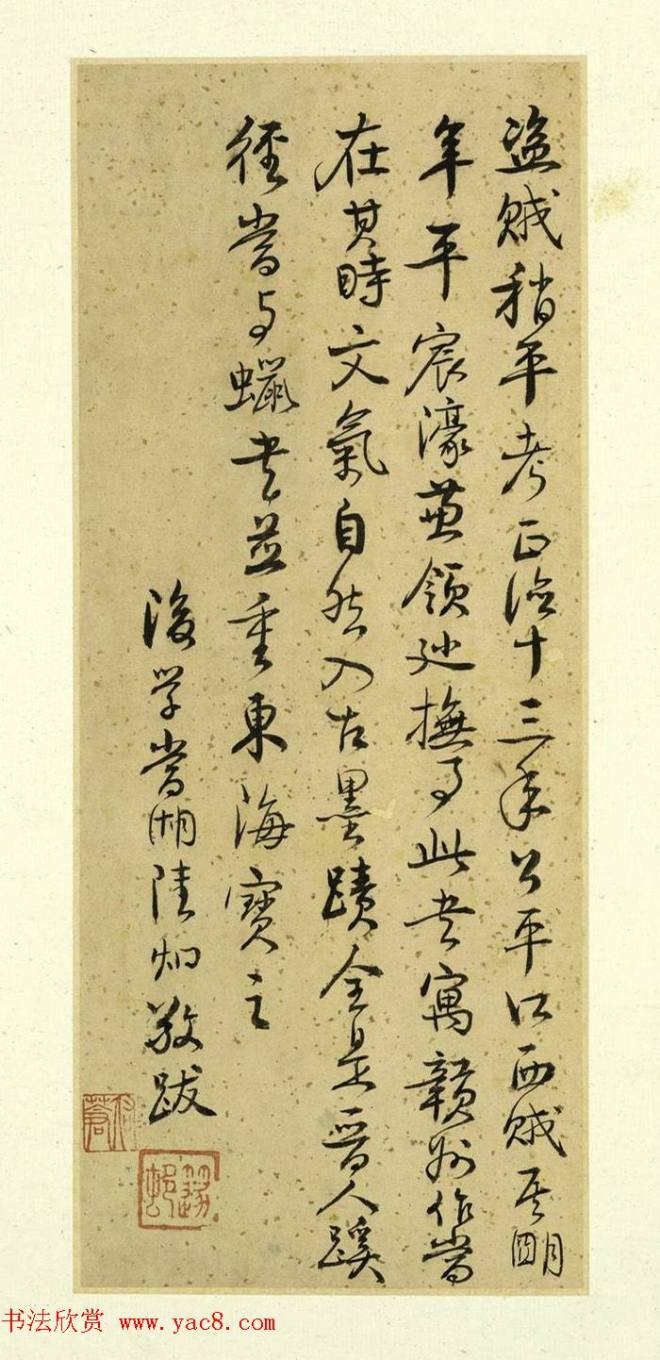 盜賊稍平考正德十三年公平江西賊其明
年平宸濠兼領巡撫事此書寓贛州作當
在其時文氣自然入古墨蹟全是晉人蹊
徑當与蠟書並重東海寶之
後学當湖陸炯敬跋
书法欣赏 www.yac8.com